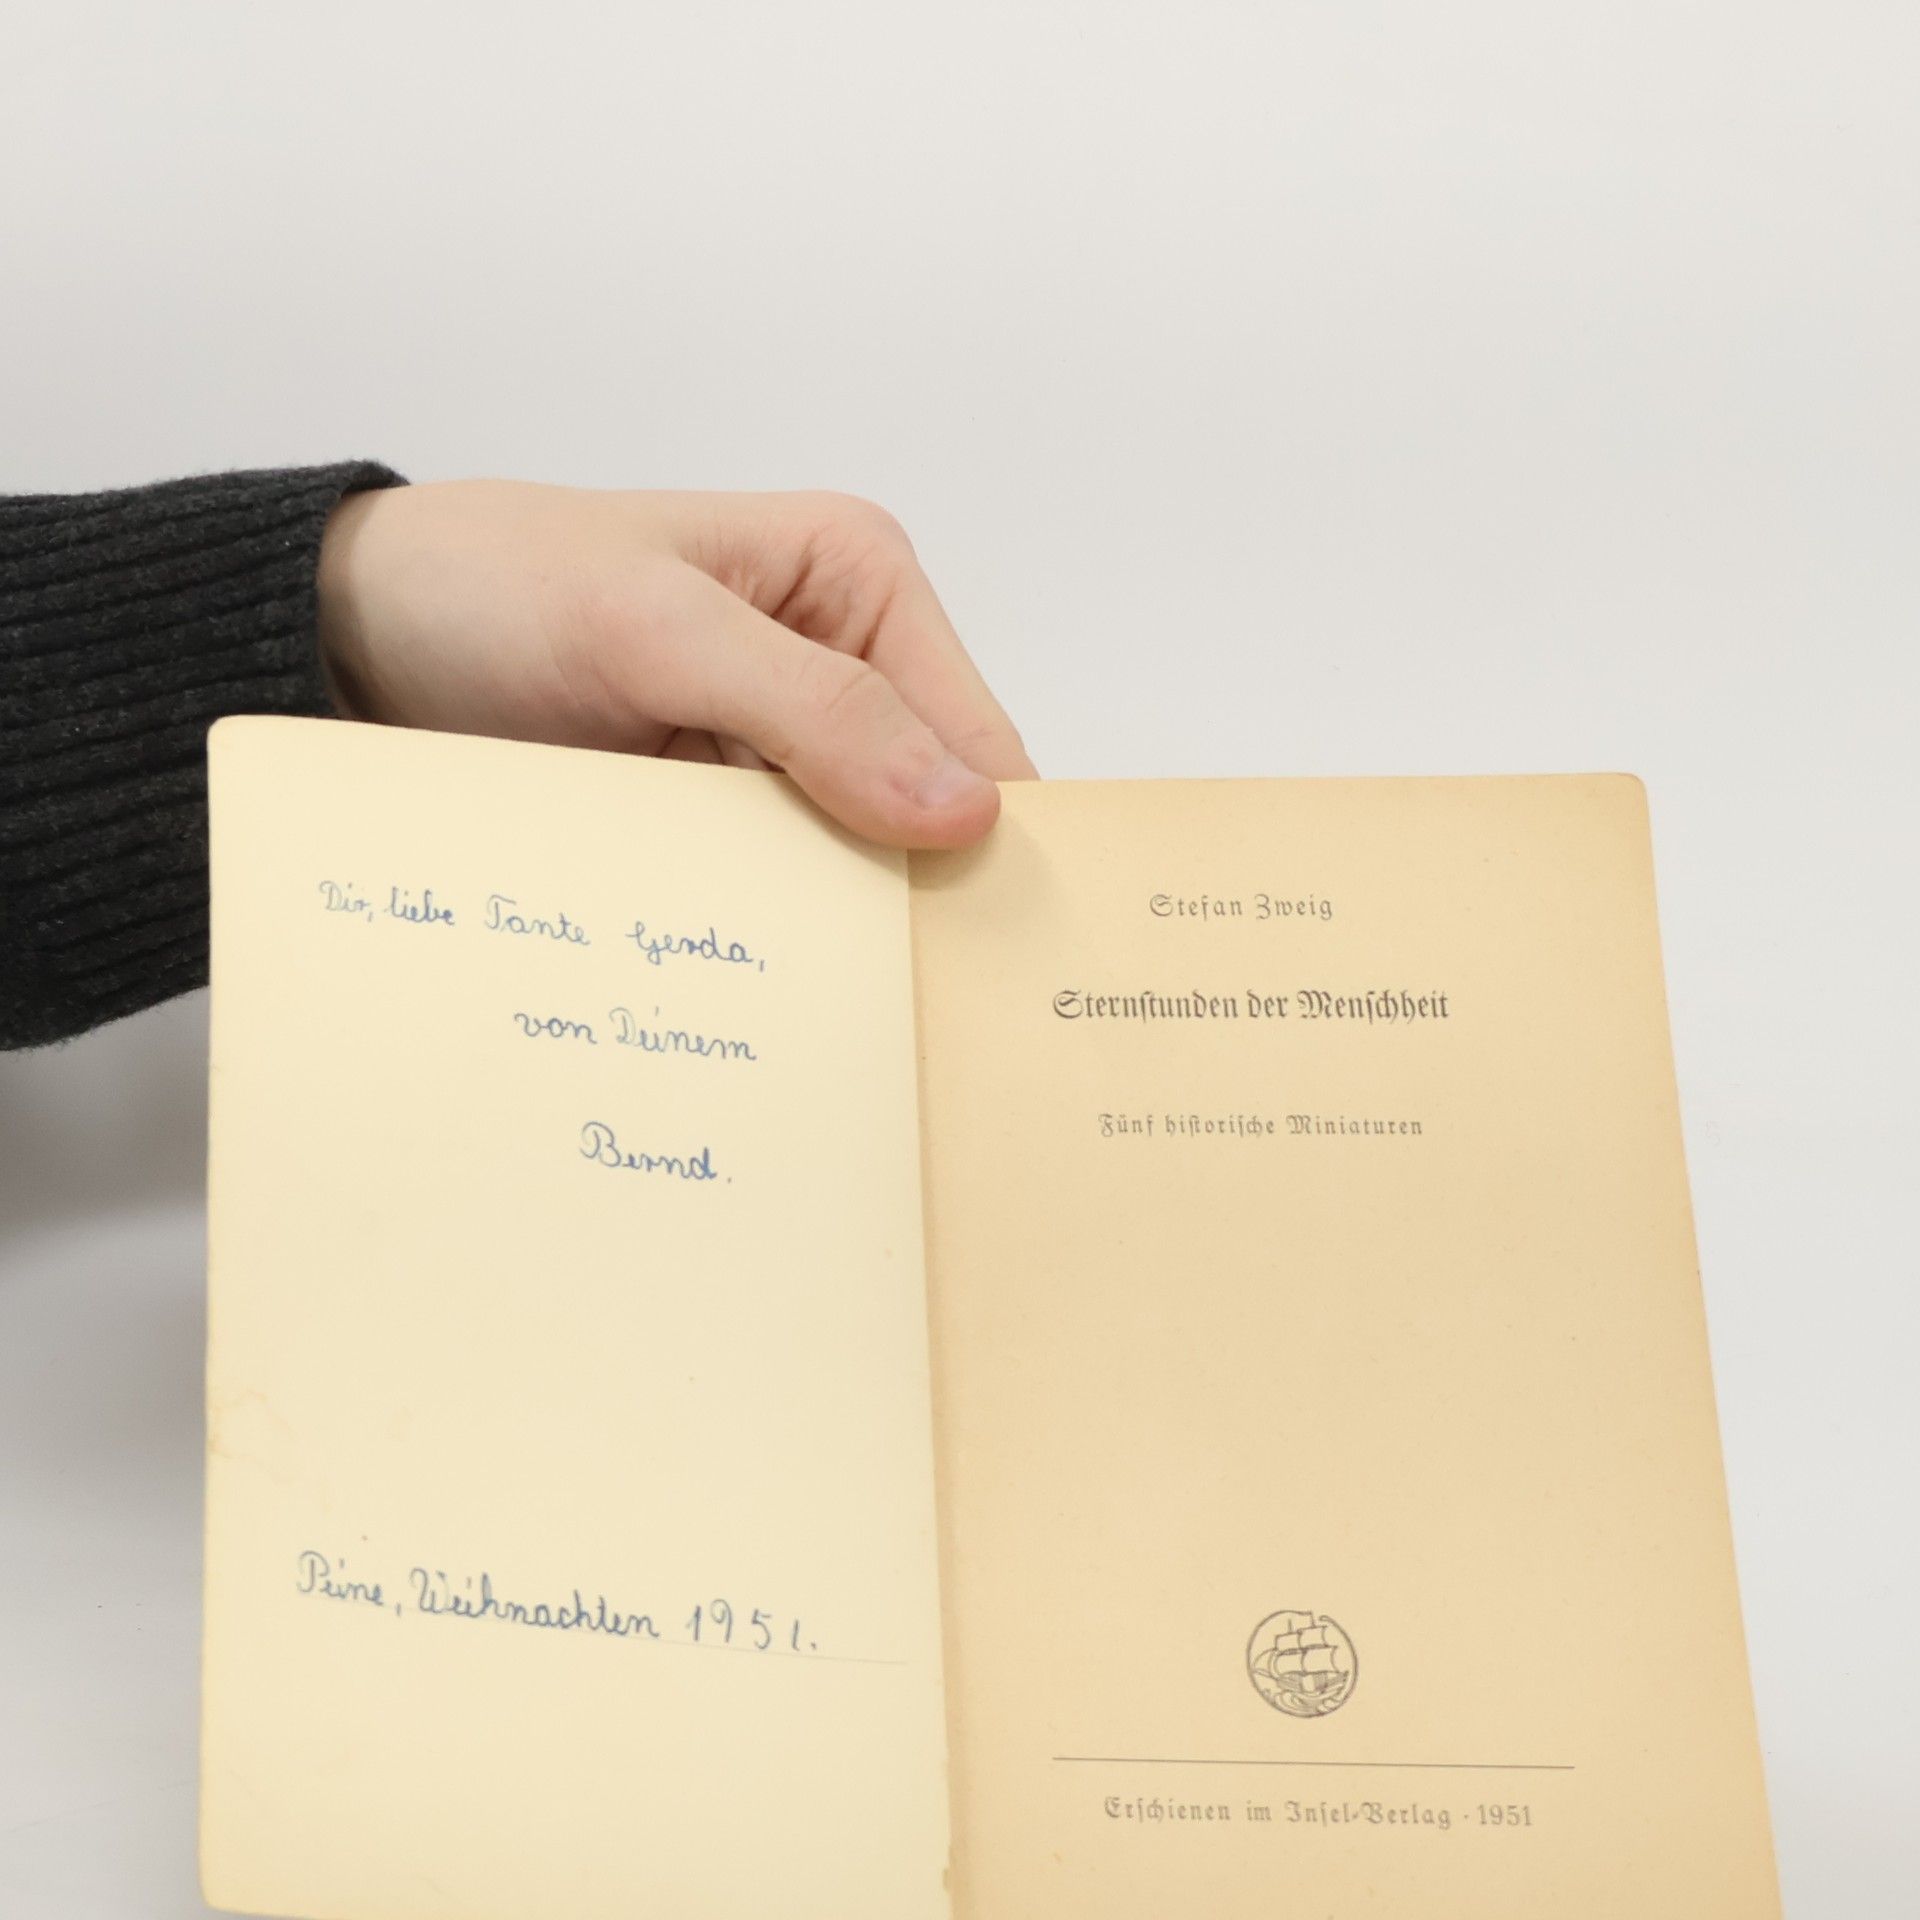 Dir, liebe Tante Gerda,
von Deinem
Bernd.
Peine, Weihnachten 1951.
Stefan Zweig
Sternſtunden der Menſchheit
Fünf hiſtoriſche Miniaturen
Erſchienen im Inſel-Verlag · 1951